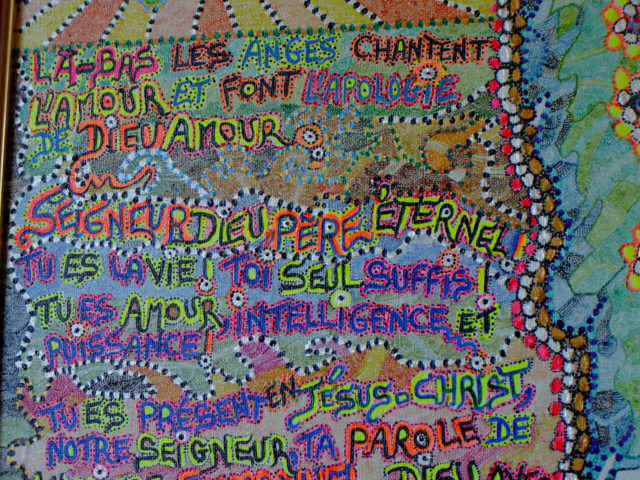 LÀ-BAS LES ANGES CHANTENT
L'AMOUR ET FONT L'APOLOGIE
DE DIEU AMOUR.
SEIGNEUR DIEU, PÈRE ÉTERNEL!
TU ES LA VIE! TOI SEUL SUFFIS!
TU ES AMOUR, INTELLIGENCE ET
PUISSANCE!
TU ES PRÉSENT EN JÉSUS-CHRIST,
NOTRE SEIGNEUR, TA PAROLE DE
DIEU